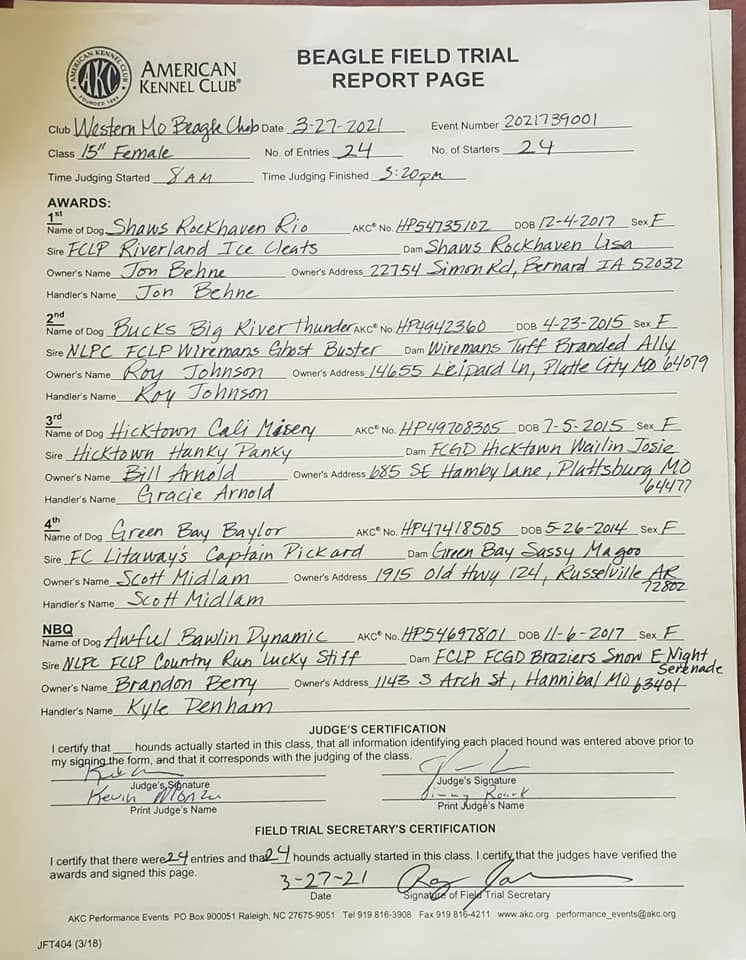 AMERICAN KENNEL CLUB
AKC
FOUNDED 1884
AMERICAN
KENNEL CLUB®
BEAGLE FIELD TRIAL
REPORT PAGE
Club Western Mo Beagle Club Date 3-27-2021 Event Number 2021739001
Class 15" Female No. of Entries 24 No. of Starters 24
Time Judging Started 8 AM Time Judging Finished 3:20pm
AWARDS:
1st
Name of Dog Shaws Rockhaven Rio AKC® No. HP54735102 DOB 12-4-2017 Sex F
Sire FCLP Riverland Ice Cleats Dam Shaws Rockhaven Lisa
Owner's Name Jon Behne Owner's Address 22754 Simon Rd, Bernard IA 52032
Handler's Name Jon Behne
2nd
Name of Dog Bucks Big River Thunder AKC® No. HP4942360 DOB 4-23-2015 Sex F
Sire NLPC FCLP Wiremans Ghost Buster Dam Wiremans Tuff Branded Ally
Owner's Name Roy Johnson Owner's Address 14655 Ln, Platte City MO 64079
Handler's Name Roy Johnson
3rd
Name of Dog Hicktown Cali Misery AKC® No. HP49708305 DOB 7-5-2015 Sex F
Sire Hicktown Hanky Panky Dam FCGD Hicktown Wailin Josie
Owner's Name Bill Arnold Owner's Address 685 SE Hamby Lane, Plattsburg MO
64477
Handler's Name Gracie Arnold
4th
Name of Dog Green Bay Baylor AKC® No. HP47418505 DOB 5-26-2014 Sex F
Sire FC Litaway's Captain Pickard Dam Green Bay Sassy Magoo
Owner's Name Scott Midlam Owner's Address 1915 Old Hwy 124, Russelville AR
72802
Handler's Name Scott Midlam
NBQ
Name of Dog Awful Bawlin Dynamic AKC® No. HP54697801 DOB 11-6-2017 Sex F
Sire NLPC FCLP Country Run Lucky Stiff Dam FCLP FCGD Braziers Snow E Night
Serenade
Owner's Name Brandon Berry Owner's Address 1143 S Arch St, Hannibal MO 63401
Handler's Name Kyle Denham
JUDGE'S CERTIFICATION
I certify that ___ hounds actually started in this class, that all information identifying each placed hound was entered above prior to
my signing the form, and that it corresponds with the judging of the class.
Judge's Signature Judge's Signature
Kevin Jimmy
Print Judge's Name Print Judge's Name
FIELD TRIAL SECRETARY'S CERTIFICATION
I certify that there were 24 entries and that 24 hounds actually started in this class. I certify that the judges have verified the
awards and signed this page.
3-27-21
Date Signature of Field Trial Secretary
AKC Performance Events PO Box 900051 Raleigh, NC 27675-9051 Tel 919 816-3908 Fax 919 816-4211 www.akc.org performance_events@akc.org
JFT404 (3/18)